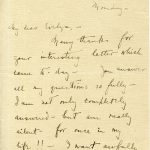 Monday -
My dear Evelyn -
Many thanks for
your interesting letter which
came to-day - You answer
all my questions so fully -
I am not only completely
answered - but am really
silent for once in my
life !! - I want awfully